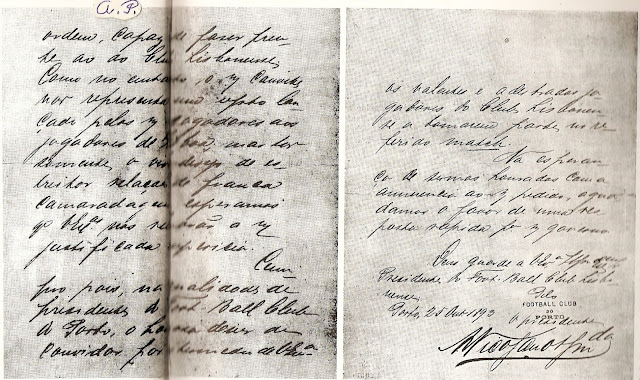 A. P.
ordem, capaz de fazer fren-
te ao do Club Lisbonense,
Como no entanto, o n/ convite
nos representa um
çado pelos n/ jogadores aos
jogadores de Lisboa, mas tão
somente, o vivo desejo de es-
treitar relações de franca
camaradagem esperamos
que V. Ex.as nos relevarão a n/
justificada ousadia.
Cum-
pro pois, na qualidade de
presidente do Foot-Ball Club
do Porto, o honroso dever de
convidar por intermedio de V. Ex.a
os valentes e adestrados jo-
gadores do Club Lisbonen-
se a tomarem parte no re-
ferido match.
Na esperan-
ça de sermos honrados com a
annuencia ao n/ pedido, aguar-
damos o favor de uma res-
posta rapida p.a n/ governo.
Deus guarde a V. Ex.a
Presidente do Foot-Ball Club Lisbo-
nense
Pelo
FOOTBALL CLUB
DO
PORTO
Porto, 25 Out. 1893
O presidente